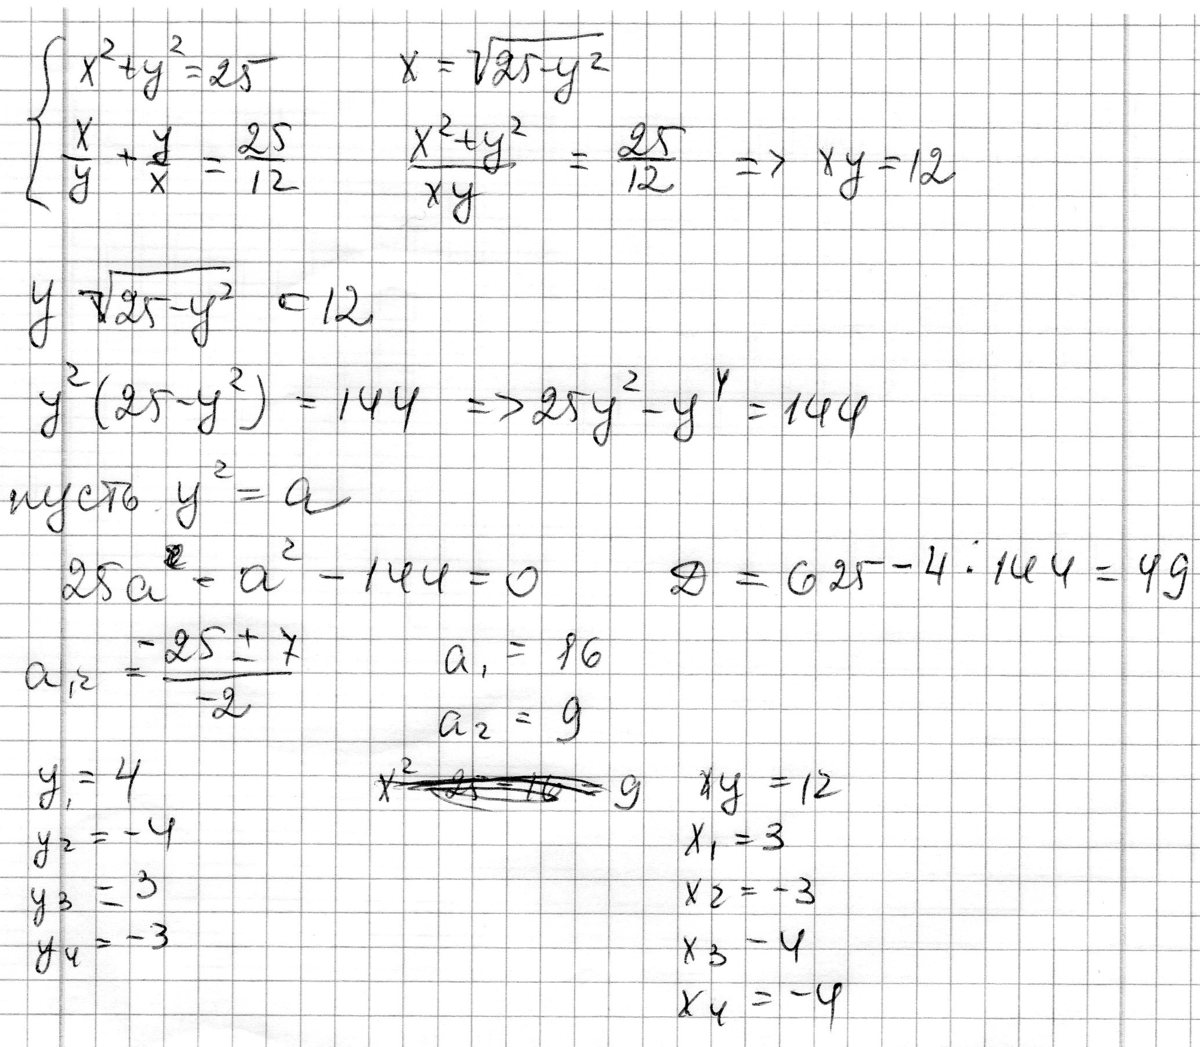 { x² + y² = 25    x = √(25-y²)
x/y + y/x = 25/12    (x² + y²)/(xy) = 25/12 => xy = 12
y √(25-y²) = 12
y² (25-y²) = 144 => 25y² - y⁴ = 144
пусть y² = a
25a - a² - 144 = 0    D = 625 - 4·144 = 49
a₁,₂ = (-25 ± 7)/(-2)    a₁ = 16
a₂ = 9
y₁ = 4    x² 25 - 16 = 9    xy = 12
y₂ = -4    x₁ = 3
y₃ = 3    x₂ = -3
y₄ = -3    x₃ - 4
x₄ = -4